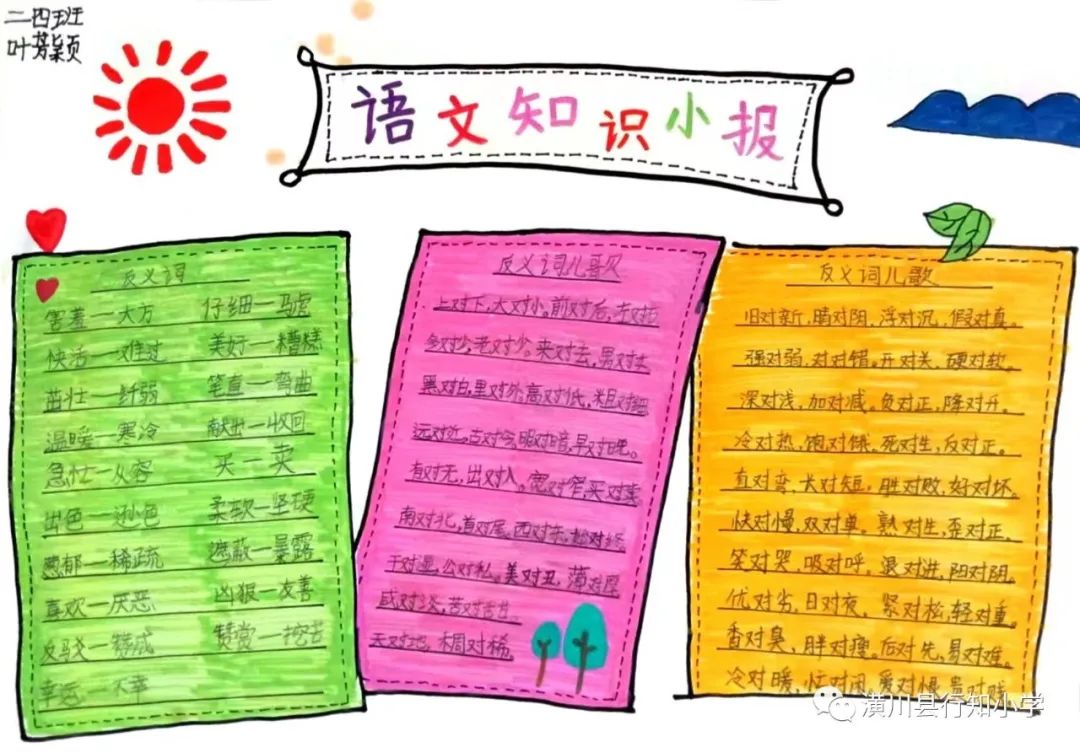 二四班
叶芳颖
语文知识小报
反义词
害羞—大方 仔细—马虎
快活—难过 美好—糟糕
茁壮—纤弱 笔直—弯曲
温暖—寒冷 献出—收回
急忙—从容 买—卖
出色—逊色 柔软—坚硬
葱郁—稀疏 遮蔽—暴露
喜欢—厌恶 凶狠—友善
反驳—赞成 赞赏—挖苦
幸运—不幸
反义词儿歌
上对下,大对小。前对后,左对右
多对少,老对少。来对去,男对女
黑对白,里对外,高对低,粗对细
远对近,古对今,明对暗,早对晚。
有对无,出对入。宽对窄,买对卖
南对北,首对尾。西对东。始对终
干对湿,公对私。美对丑,薄对厚
咸对淡,苦对甜。
天对地,稠对稀。
反义词儿歌
旧对新,晴对阴,浮对沉,假对真。
强对弱,对对错。开对关,硬对软。
深对浅,加对减。负对正,降对升。
冷对热,饱对饿。死对生,反对正。
直对弯,长对短,胜对败,好对坏。
快对慢,双对单。熟对生,歪对正。
笑对哭,吸对呼,退对进,阳对阴。
优对劣,日对夜,紧对松,轻对重。
香对臭,胖对瘦。后对先,易对难。
冷对暖,忙对闲,爱对恨,贵对贱
潢川县行知小学